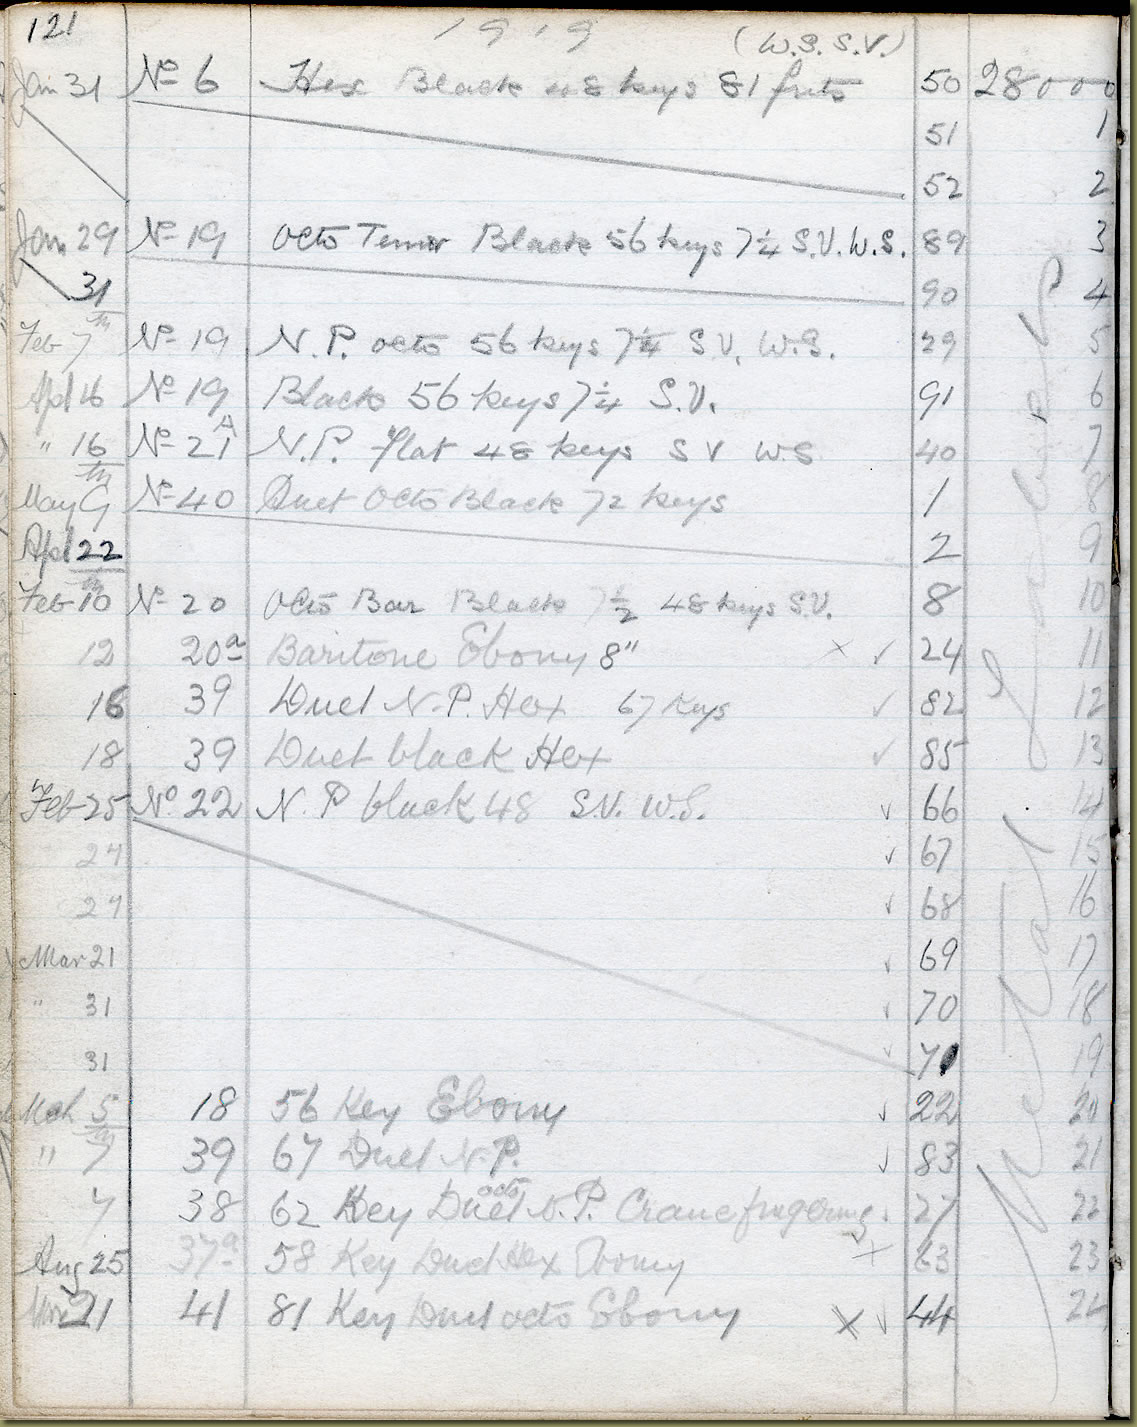 121 1919 (W.S. S.V.)
Jan 31 No 6 Hex Black 48 keys 81 frets 50 28000
51 1
52 2
Jan 29 No 19 Octo Tenor Black 56 keys 7¼ S.V. W.S. 89 3
31 90 4
Feb 7th No 19 N.P. octo 56 keys 7¼ S V. W.S. 29 5
Apl 16 No 19 Black 56 keys 7¼ S.V. 91 6
" 16 No 21A N.P. flat 48 keys S V W S 40 7
May 9th No 40 Duet Octo Black 72 keys 1 8
Apl 22 2 9
Feb 10th No 20 Octo Bar Black 7½ 48 keys S.V. 8 10
12 20a Baritone Ebony 8" x ✓ 24 11
16 39 Duet N.P. Hex 67 Keys ✓ 82 12
18 39 Duet black Hex ✓ 85 13
Feb 25 No. 22 N. P black 48 S.V. W.S. ✓ 66 14
27 ✓ 67 15
27 ✓ 68 16
Mar 21 ✓ 69 17
" 31 ✓ 70 18
31 ✓ 71 19
Mch 5th 18 56 Key Ebony ✓ 22 20
" 7 39 67 Duet N.P. ✓ 83 21
7 38 62 Key Duet octo N.P. Crane fingering. 27 22
Aug 25 37a 58 Key Duet Hex Ebony x 63 23
21 41 81 Key Duet octo Ebony x ✓ 44 24